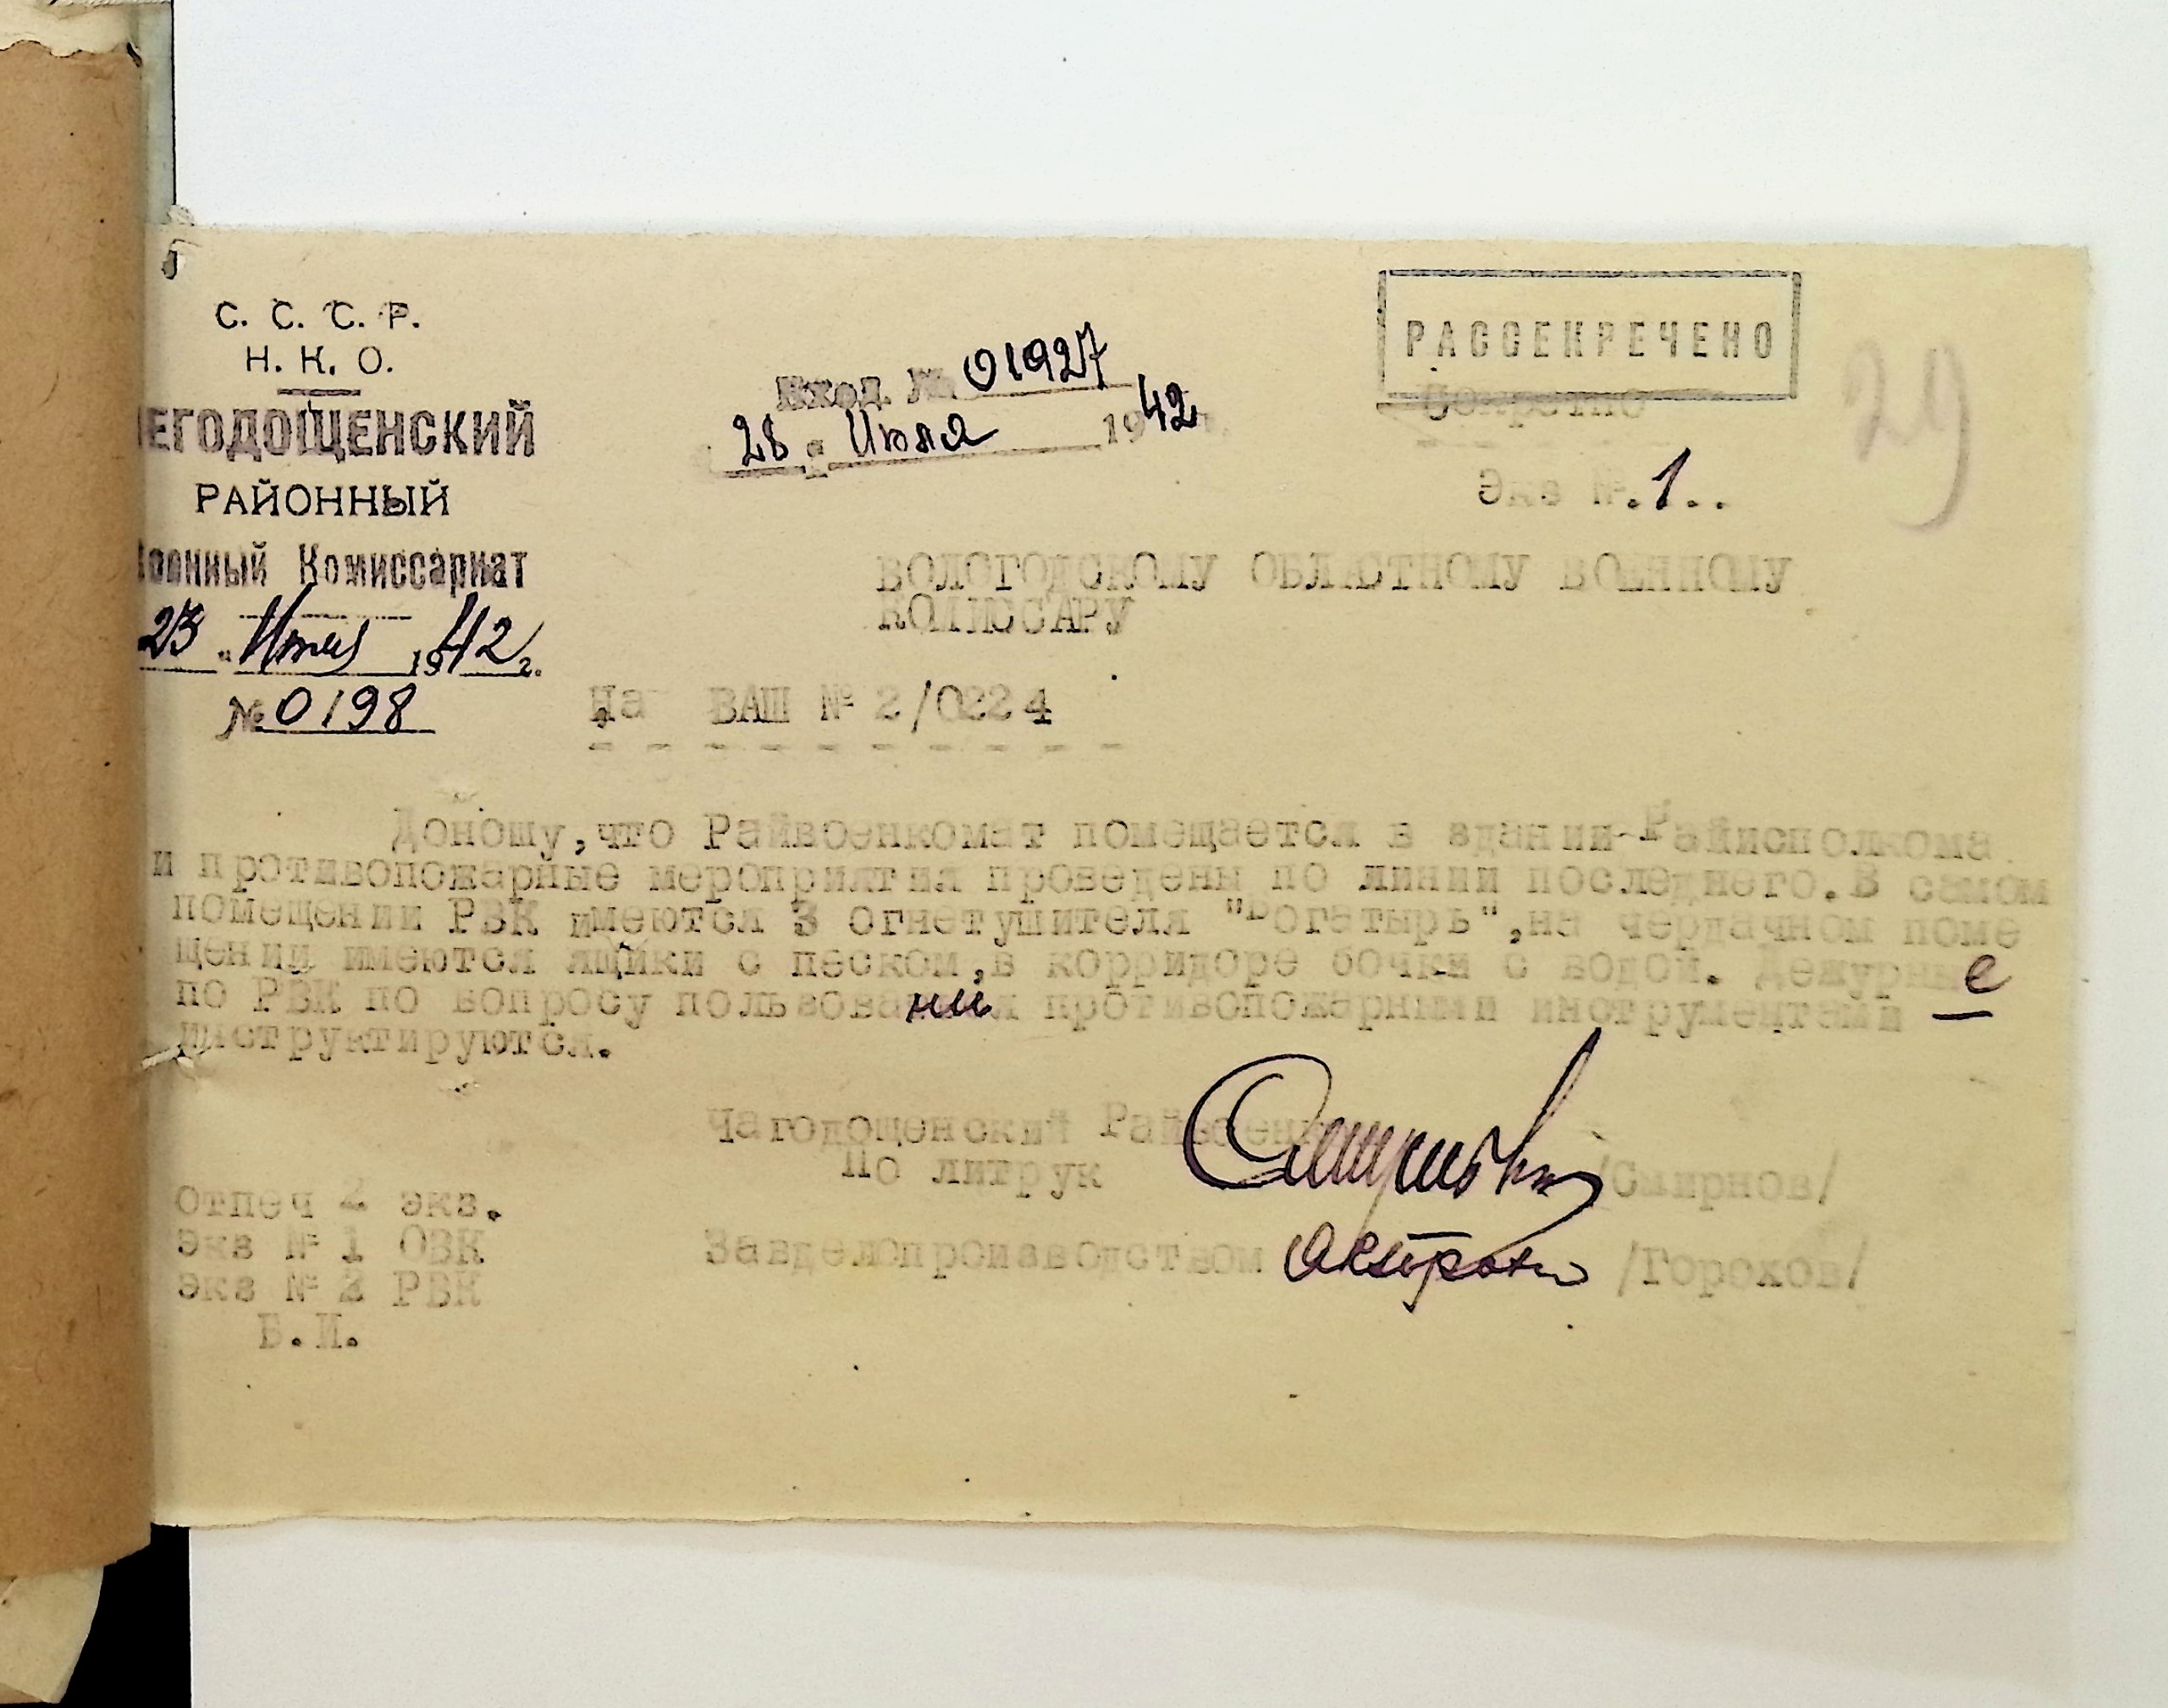 С. С. С. Р.
Н. К. О.
ЕГОДОЩЕНСКИЙ
РАЙОННЫЙ
оенный Комиссариат
23 " Июля 1942 г.
№ 0198
Вход. № 01927
28 " Июля 1942
РАССЕКРЕЧЕНО
Секретно
Экз №.1..
29
ВОЛОГОДСКОМУ ОБЛАСТНОМУ ВОЕННОМУ
КОМИССАРУ
На ВАШ № 2/0224
Доношу,что Райвоенкомат помещается в здании-Райисполкома
и противопожарные мероприятия проведены по линии последнего.В самом
помещении РВК имеются 3 огнетушителя "Богатырь",на чердачном поме
щении имеются ящики с песком,в корридоре бочки с водой. Дежурные
по РВК по вопросу пользования противопожарными инструментами
инструктируются.
Чагодощенский Райвоен
По литрук /Смирнов/
Завделопроизводством /Горохов/
Отпеч 2 экз.
Экз № 1 ОВК
Экз № 2 РВК
Б.И.